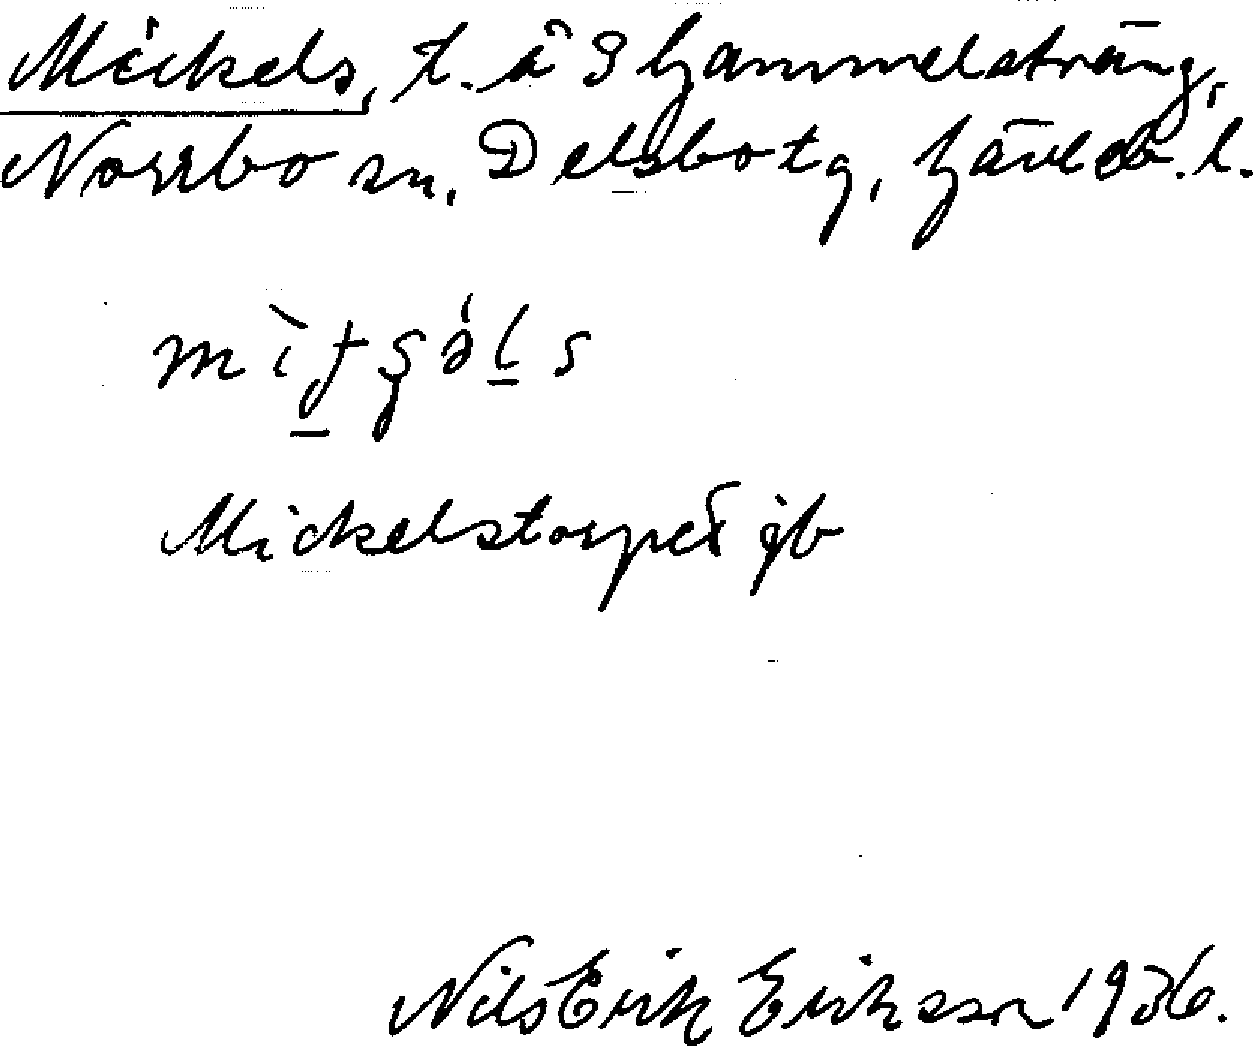 Mickels, t. å 3 Gammelsträng,
Norrbo sn. Delsbo tg, Gävleb. l.
Mickelstorpet jb
Nils Erik Eriksson 1936.